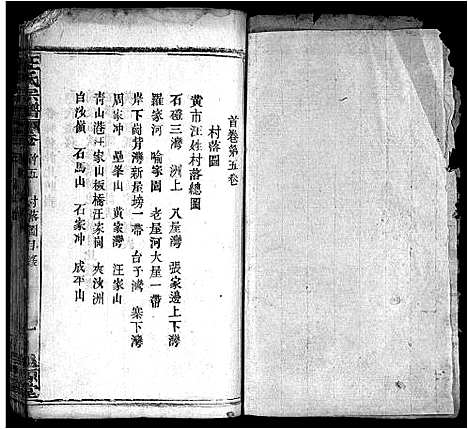 首卷第五卷
村落圖
黃市汪姓村落總圖
石磴三灣　洲上　八屋灣　張家邊上下灣
羅家河　喻家園　老屋河大屋一帶
岸下崗背灣新屋塝一帶　台子灣　寨下灣
周家冲　壘峯山　黃家灣　汪家山
青山港汪家山板橋汪家崗　夾汝洲
白汝嶺　石馬山　石家冲　成平山
汪氏宗譜
首五
村落圖目錄